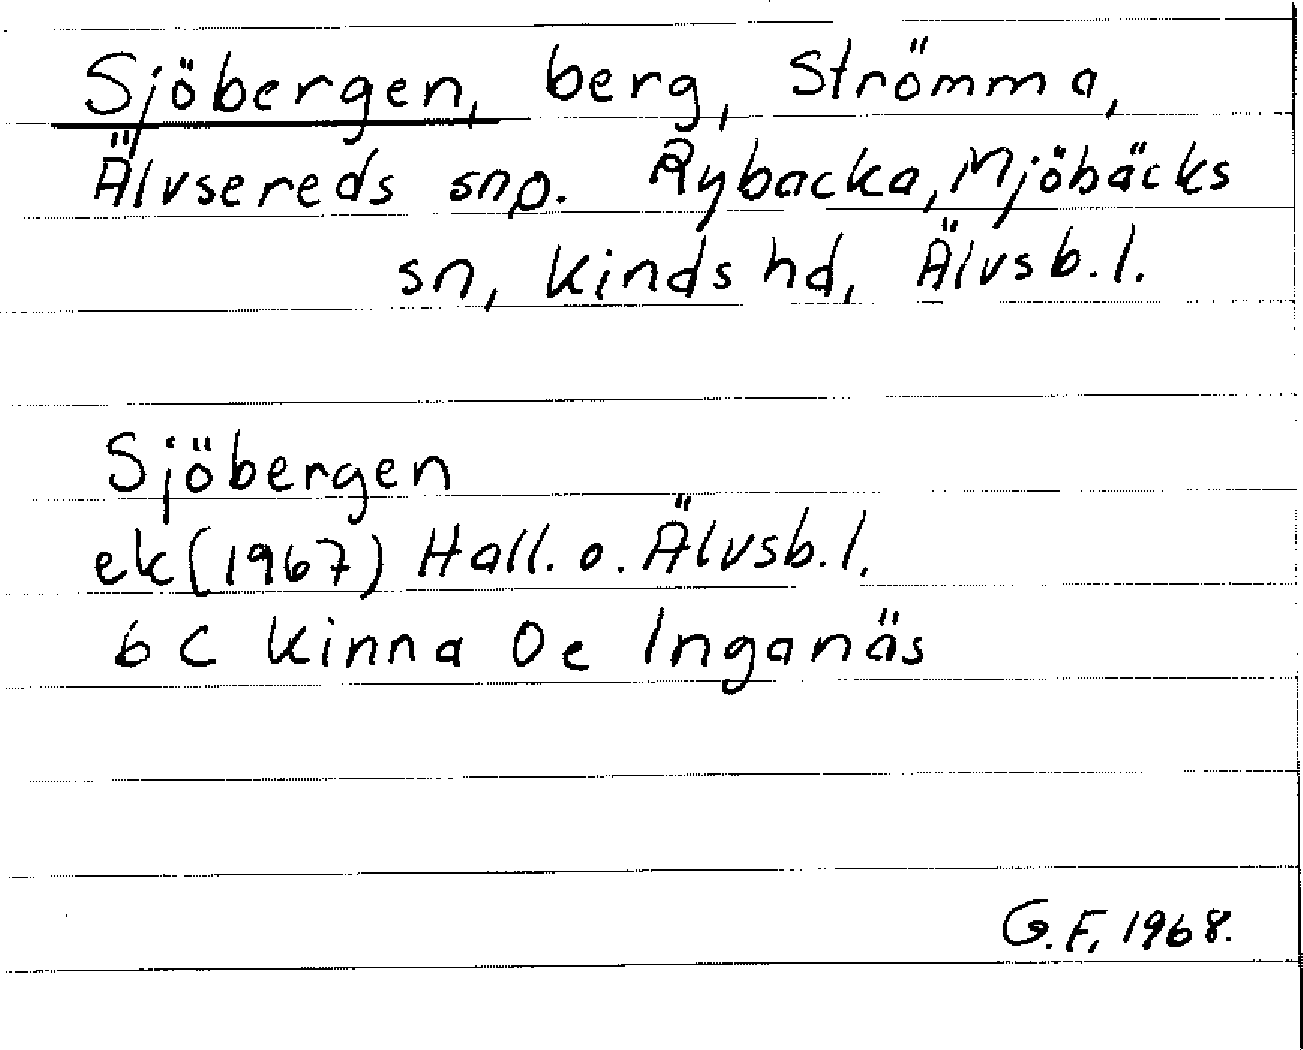 Sjöbergen, berg, Strömma,
Älvsereds snp. Rybacka, Mjöbäcks
sn, Kinds hd, Älvsb.l.
Sjöbergen
ek (1967) Hall. o. Älvsb.l.
6 C Kinna Oe Inganäs
G.F, 1968.